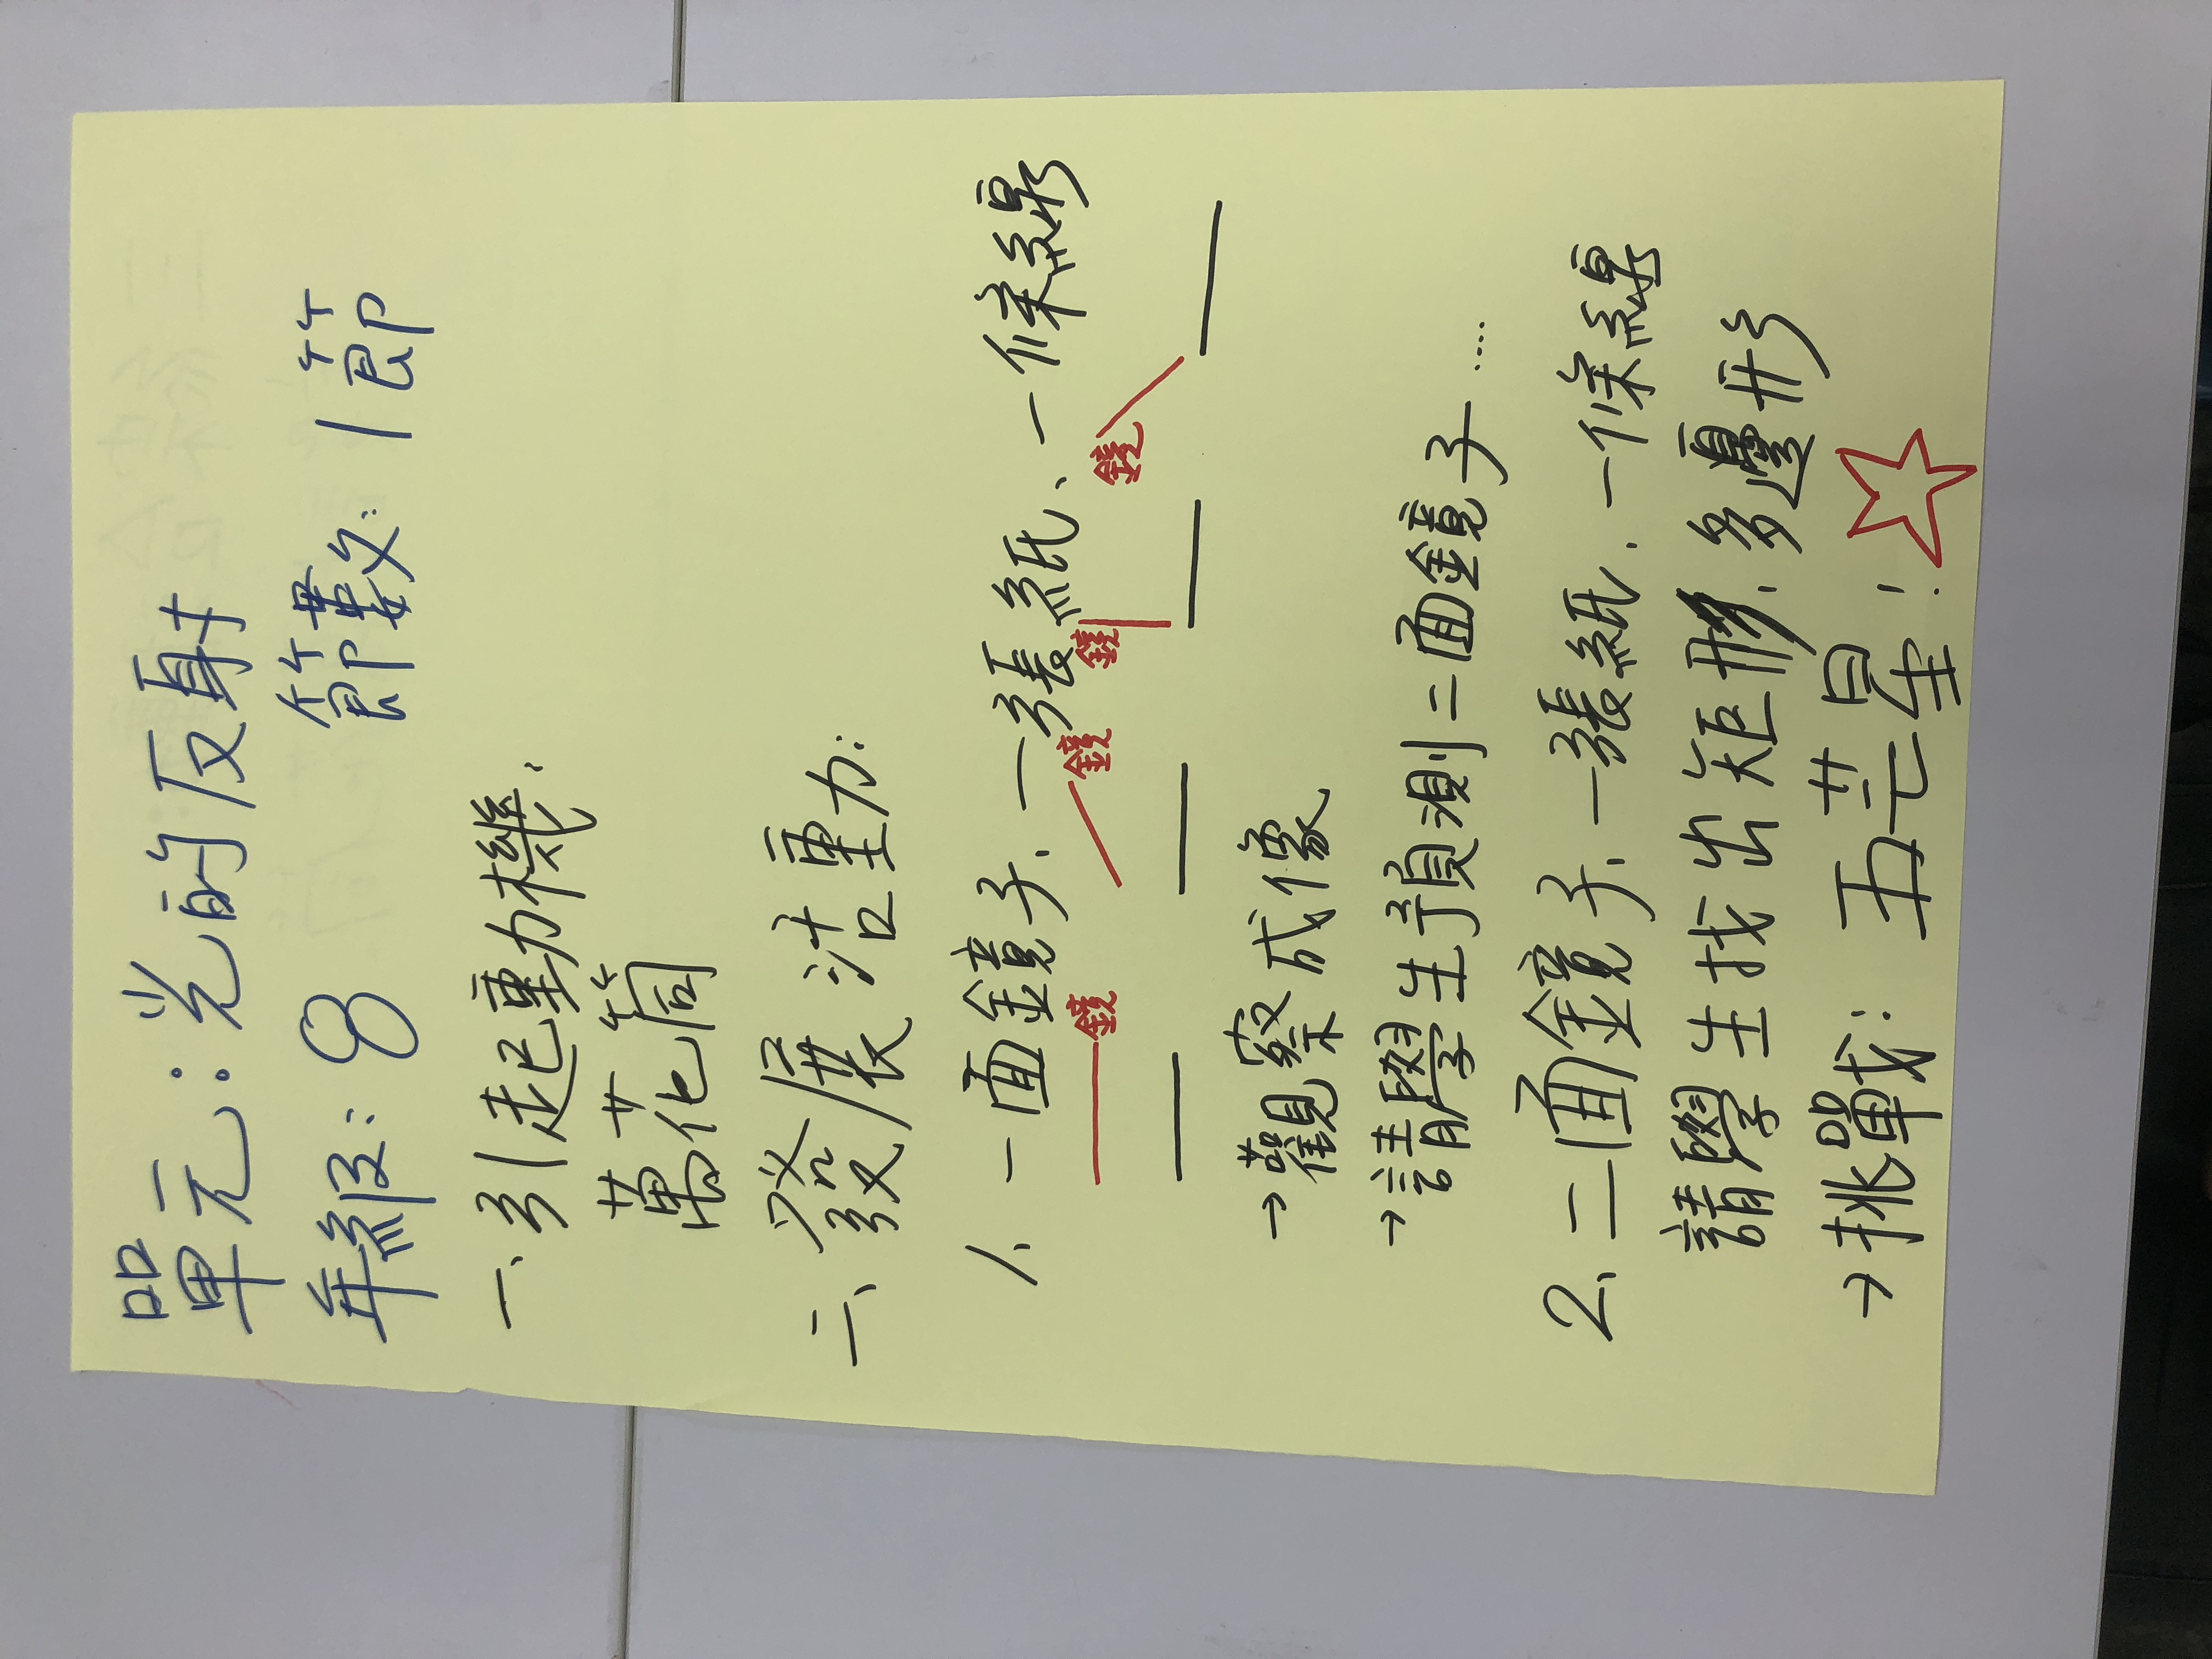 單元：光的反射
年級：8 節數：1節
一、引起動機：
萬花筒
二、發展活動：
1、一面鏡子、一張紙、一條線
鏡 鏡 鏡 鏡
→觀察成像
→請學生預測二面鏡子....
2、二面鏡子、一張紙、一條線
請學生找出矩形、多邊形
→挑戰：五芒星！